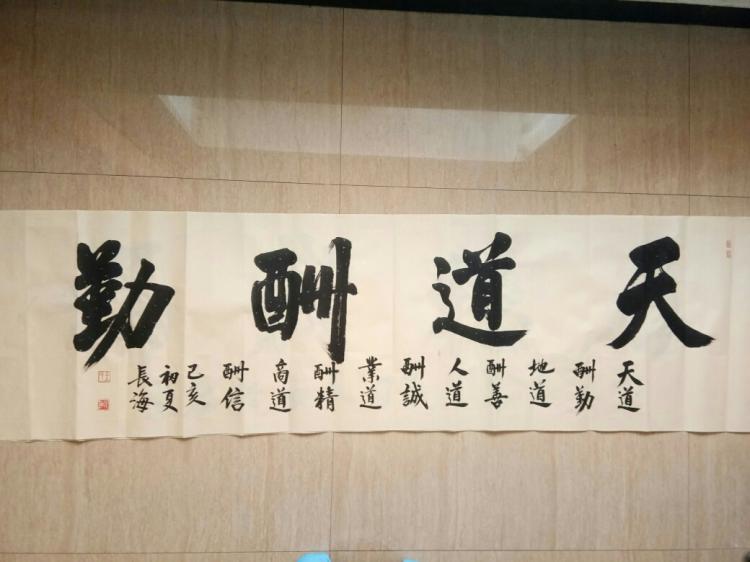 天道酬勤
天道
酬勤
地道
酬善
人道
酬誠
業道
酬精
商道
酬信
己亥
初夏
長海